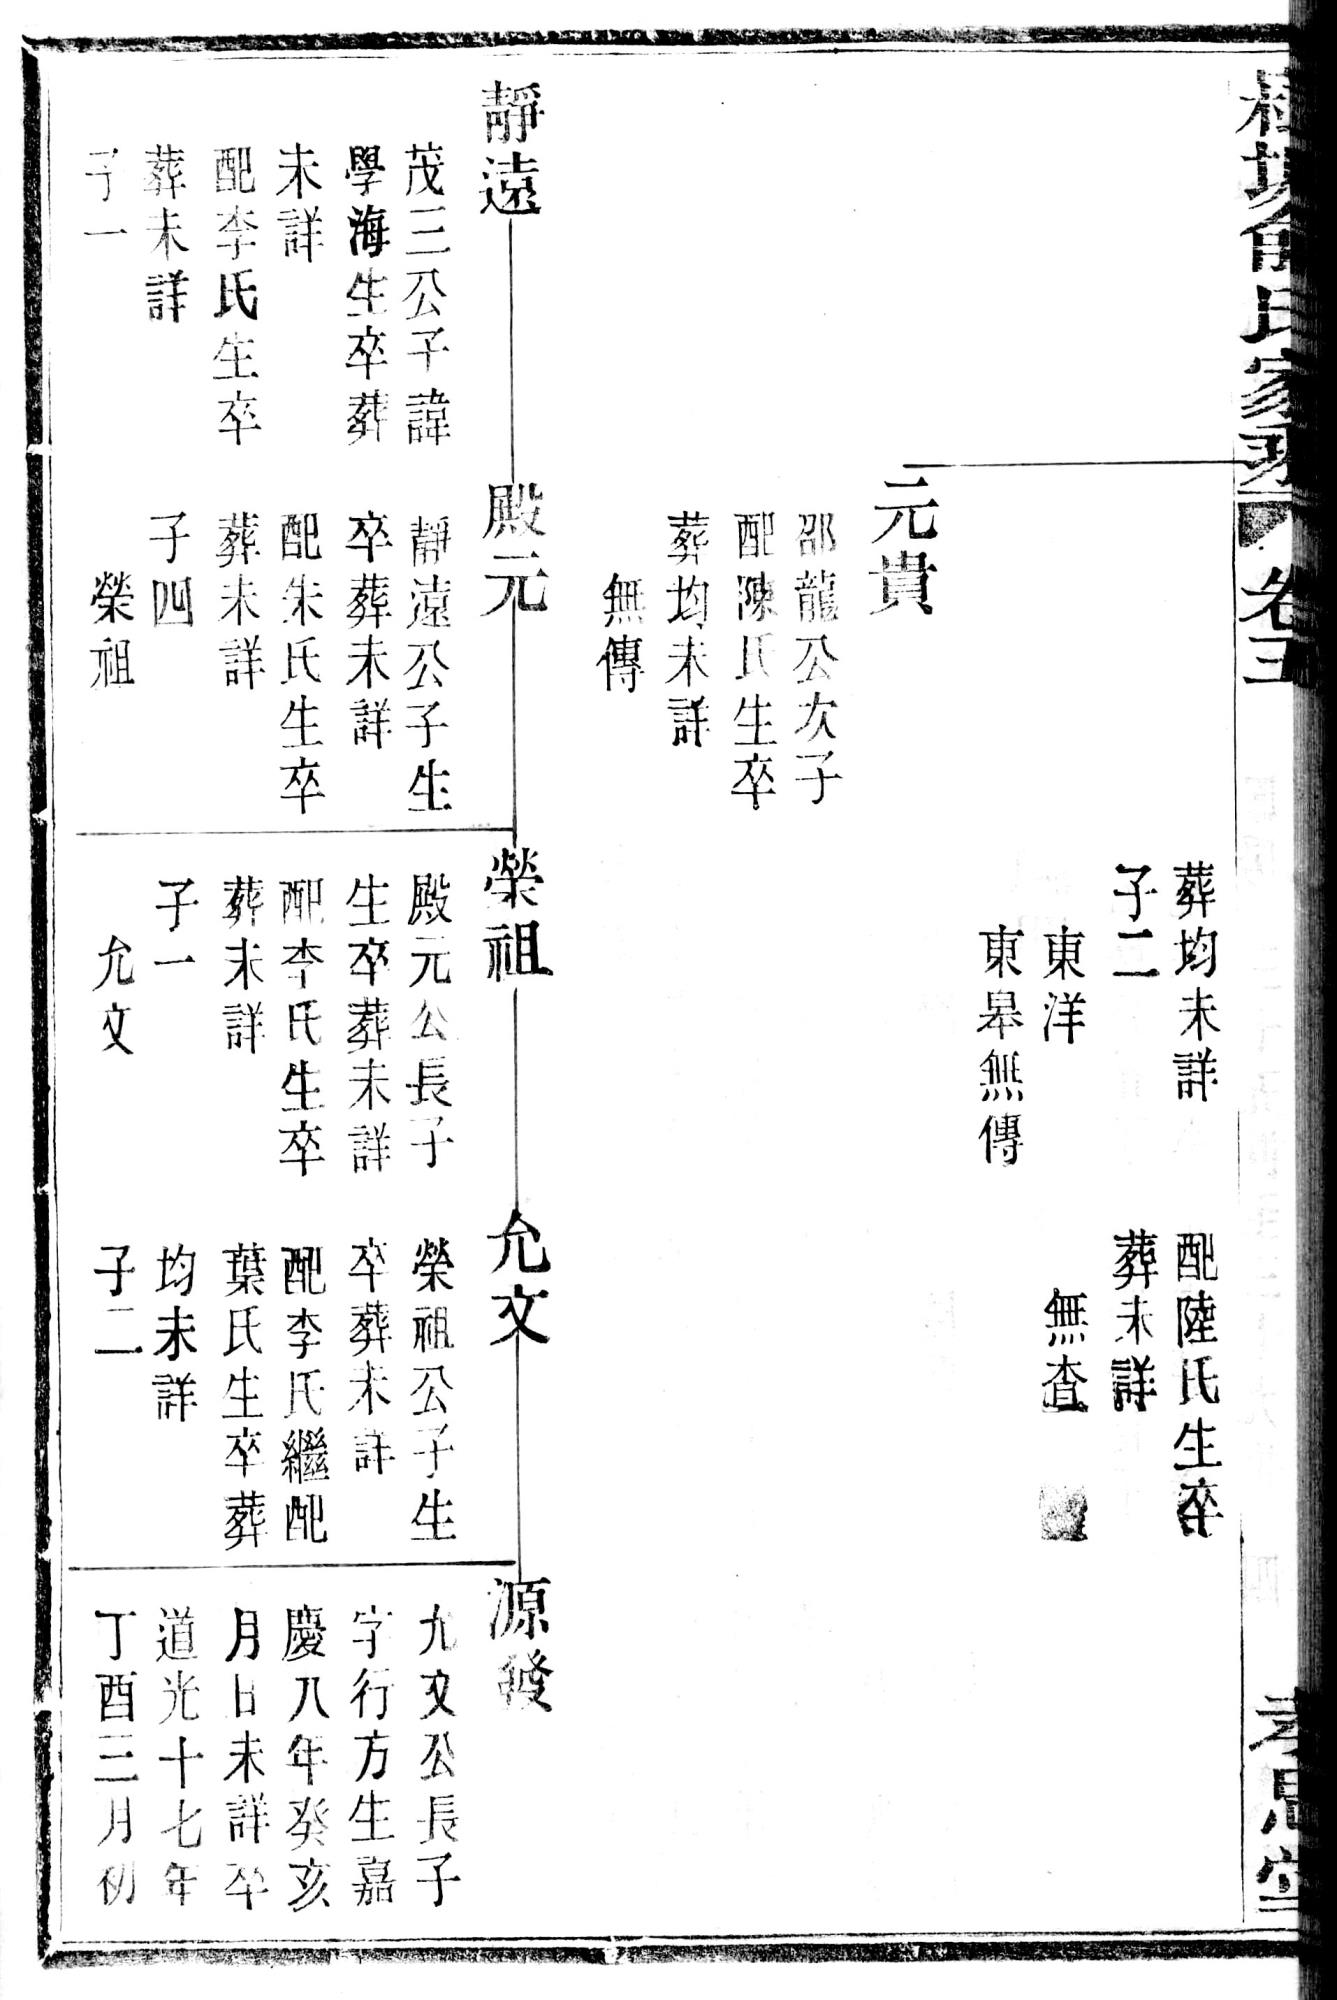 氏家乘
卷五
孝思堂
葬均未詳
子二
東洋
東皋無傳
配陸氏生卒
葬未詳
無查
元貴
邵龍公次子
配陳氏生卒
葬均未詳
無傳
靜遠
茂三公子諱
學海生卒葬
未詳
配李氏生卒
葬未詳
子一
殿元
靜遠公子生
卒葬未詳
配朱氏生卒
葬未詳
子四
榮祖
榮祖
殿元公長子
生卒葬未詳
配李氏生卒
葬未詳
子一
允文
允文
榮祖公子生
卒葬未詳
配李氏繼配
葉氏生卒葬
均未詳
子二
源發
允文公長子
字行方生嘉
慶八年癸亥
月日未詳卒
道光十七年
丁酉三月初